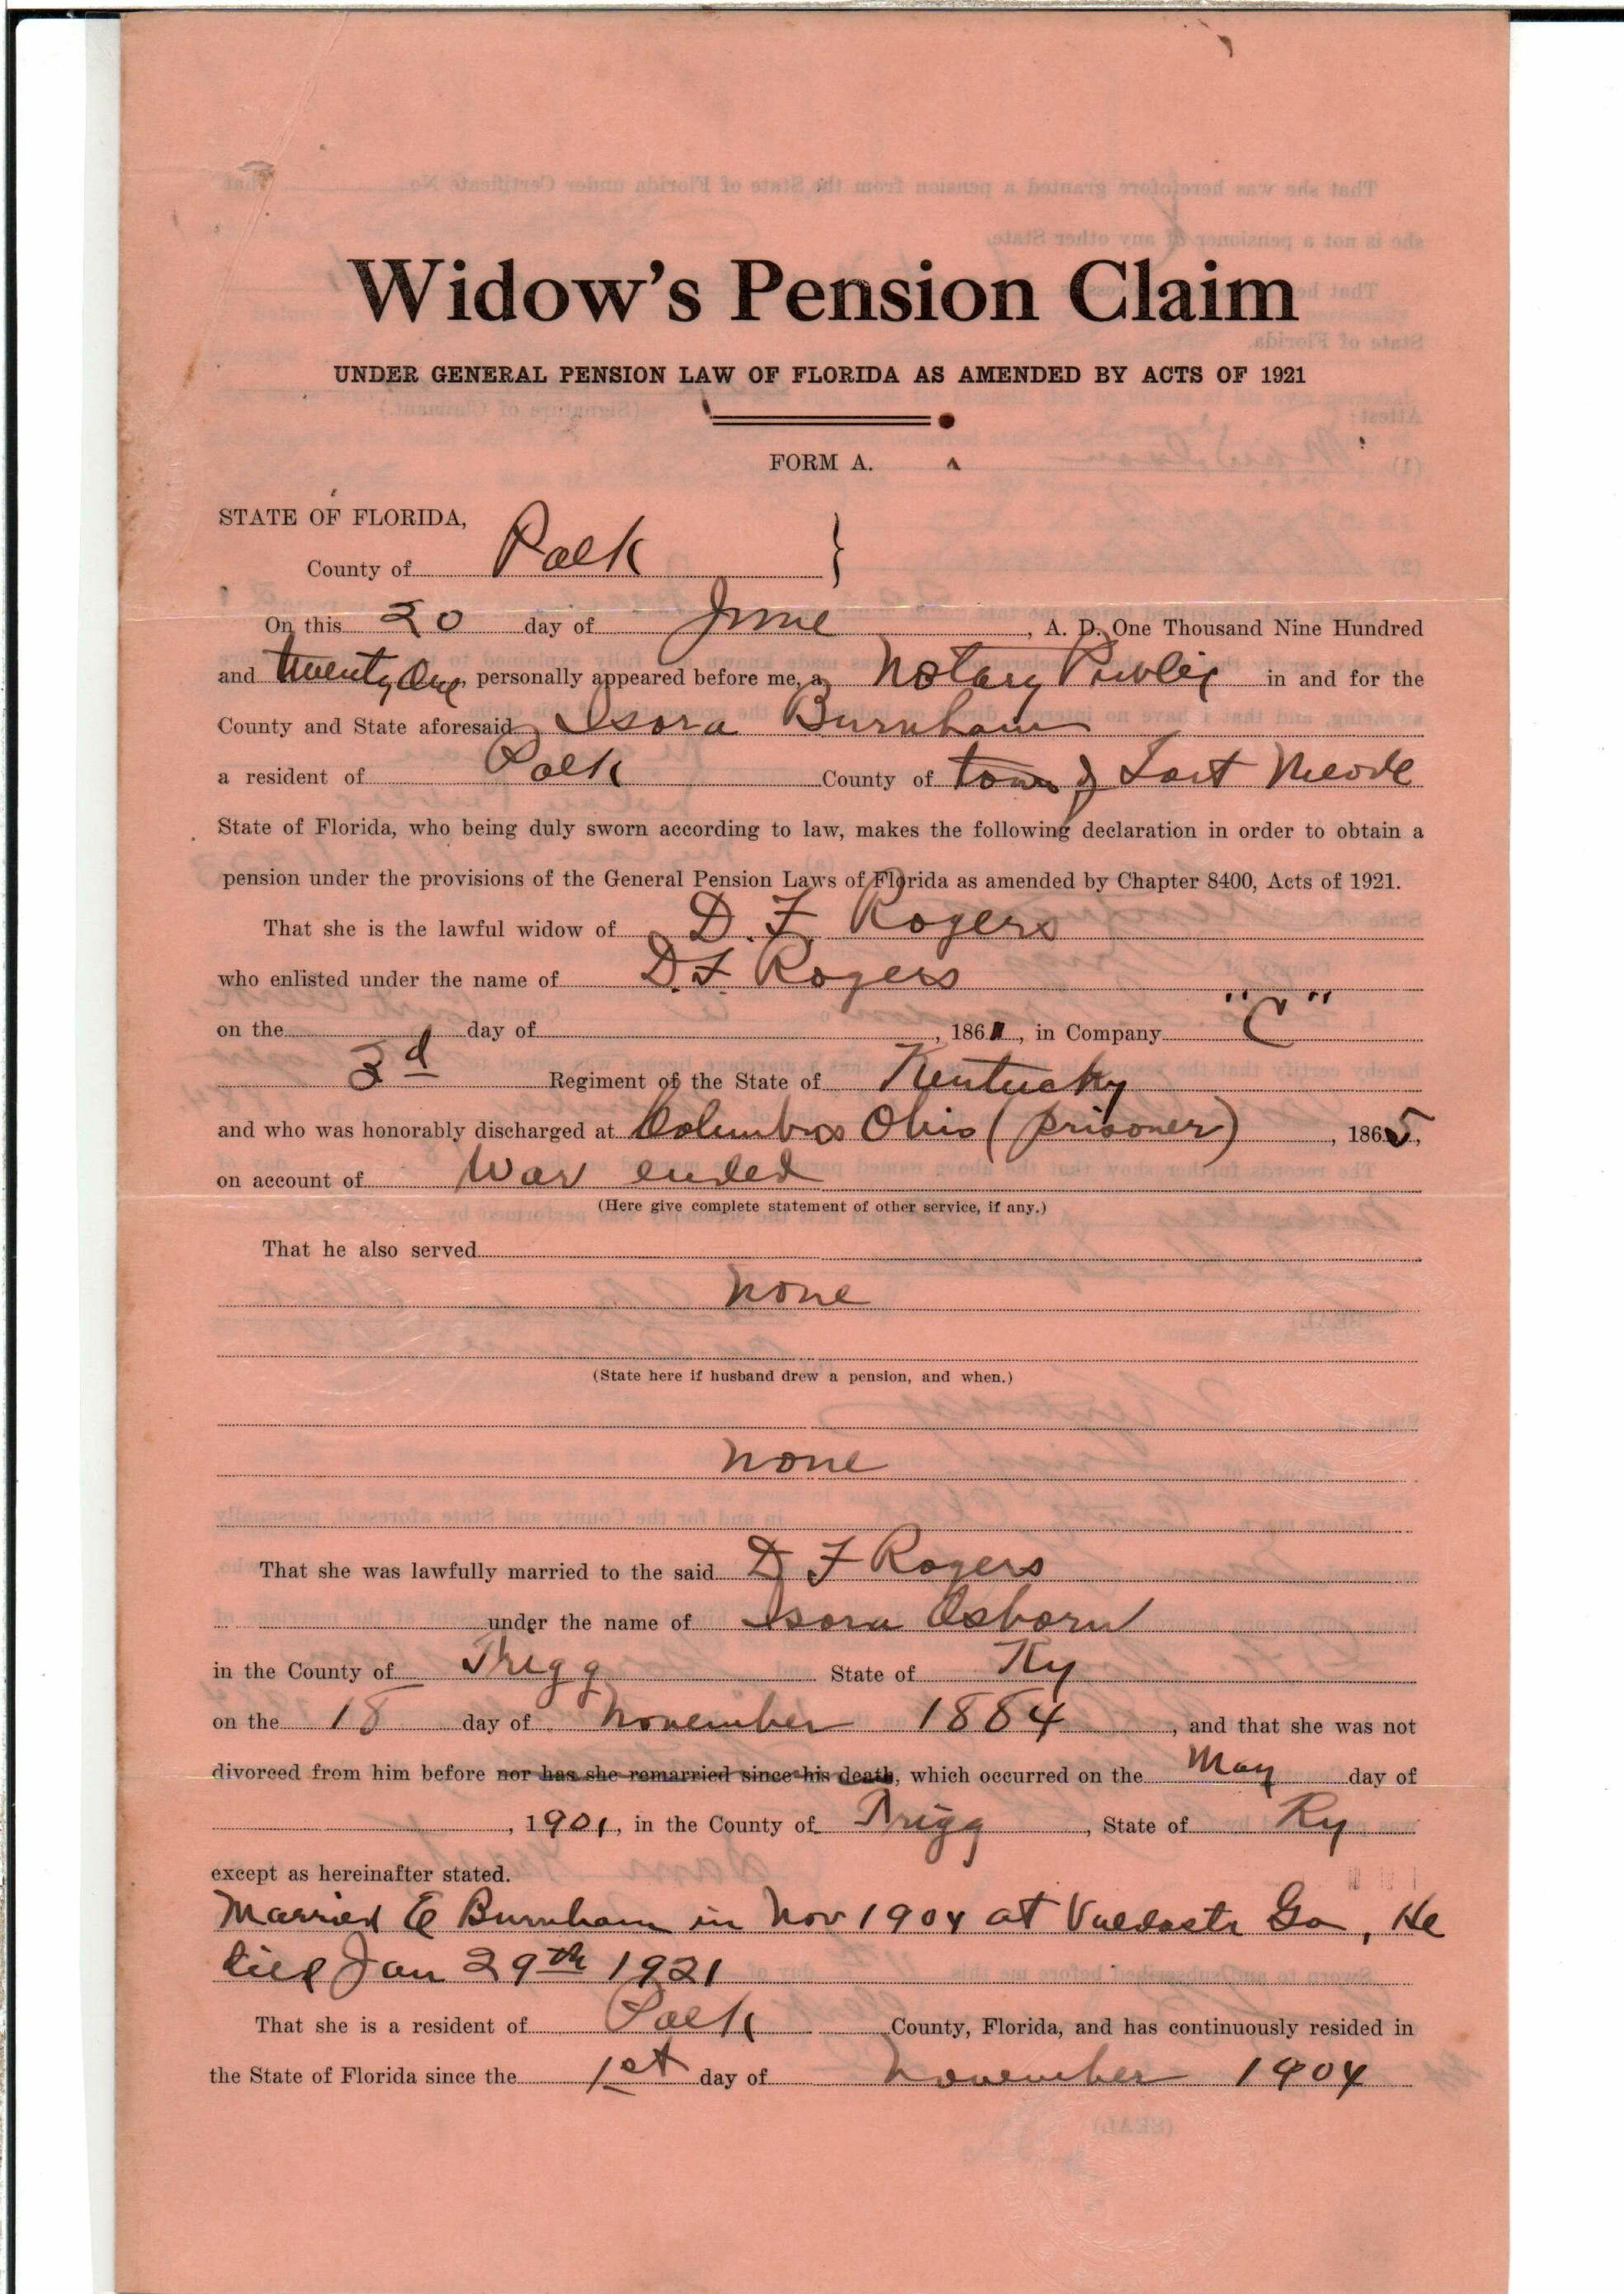 Widow's Pension Claim
UNDER GENERAL PENSION LAW OF FLORIDA AS AMENDED BY ACTS OF 1921
FORM A.
STATE OF FLORIDA,
County of Polk }
On this 20 day of June, A. D. One Thousand Nine Hundred
and twenty One, personally appeared before me, a Notary Public in and for the
County and State aforesaid, Isora Burnham
a resident of Polk County of town of Fort Meade
State of Florida, who being duly sworn according to law, makes the following declaration in order to obtain a
pension under the provisions of the General Pension Laws of Florida as amended by Chapter 8400, Acts of 1921.
That she is the lawful widow of D. F. Rogers
who enlisted under the name of D. F. Rogers
on the day of , 1861, in Company "C"
3d Regiment of the State of Kentucky
and who was honorably discharged at Columbus Ohio (prisoner), 1865,
on account of War ended
(Here give complete statement of other service, if any.)
That he also served
none
(State here if husband drew a pension, and when.)
none
That she was lawfully married to the said D F Rogers
under the name of Isora Osborn
in the County of Trigg State of Ky
on the 18 day of November 1884, and that she was not
divorced from him before nor has she remarried since his death, which occurred on the May day of
, 1901, in the County of Trigg, State of Ky
except as hereinafter stated.
Married E Burnham in Nov 1904 at Valdosta Ga, He
died Jan 29th 1921
That she is a resident of Polk County, Florida, and has continuously resided in
the State of Florida since the 1st day of November 1904